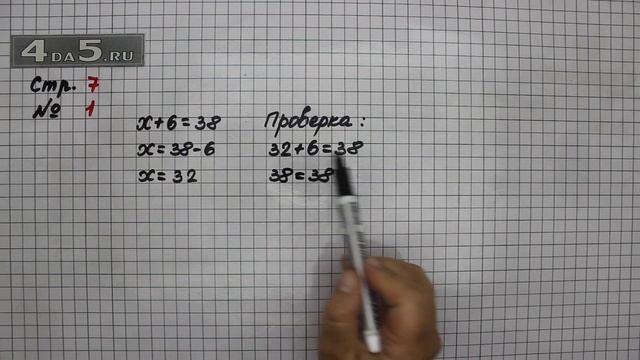 4DA5.RU
Стр. 7
№ 1
x+6=38
x=38-6
x=32
Проверка:
32+6=38
38=38